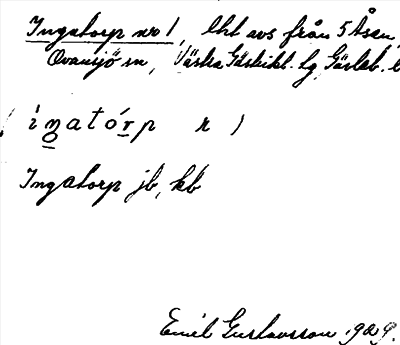 Ingatorp nr 1, lht avs från 5 Åsen,
Ovansjö sn, Västra Gästrikl. hg, Gävleb. l
ingatórp n 1
Ingatorp jb, kb
Emil Gustavsson 1929.